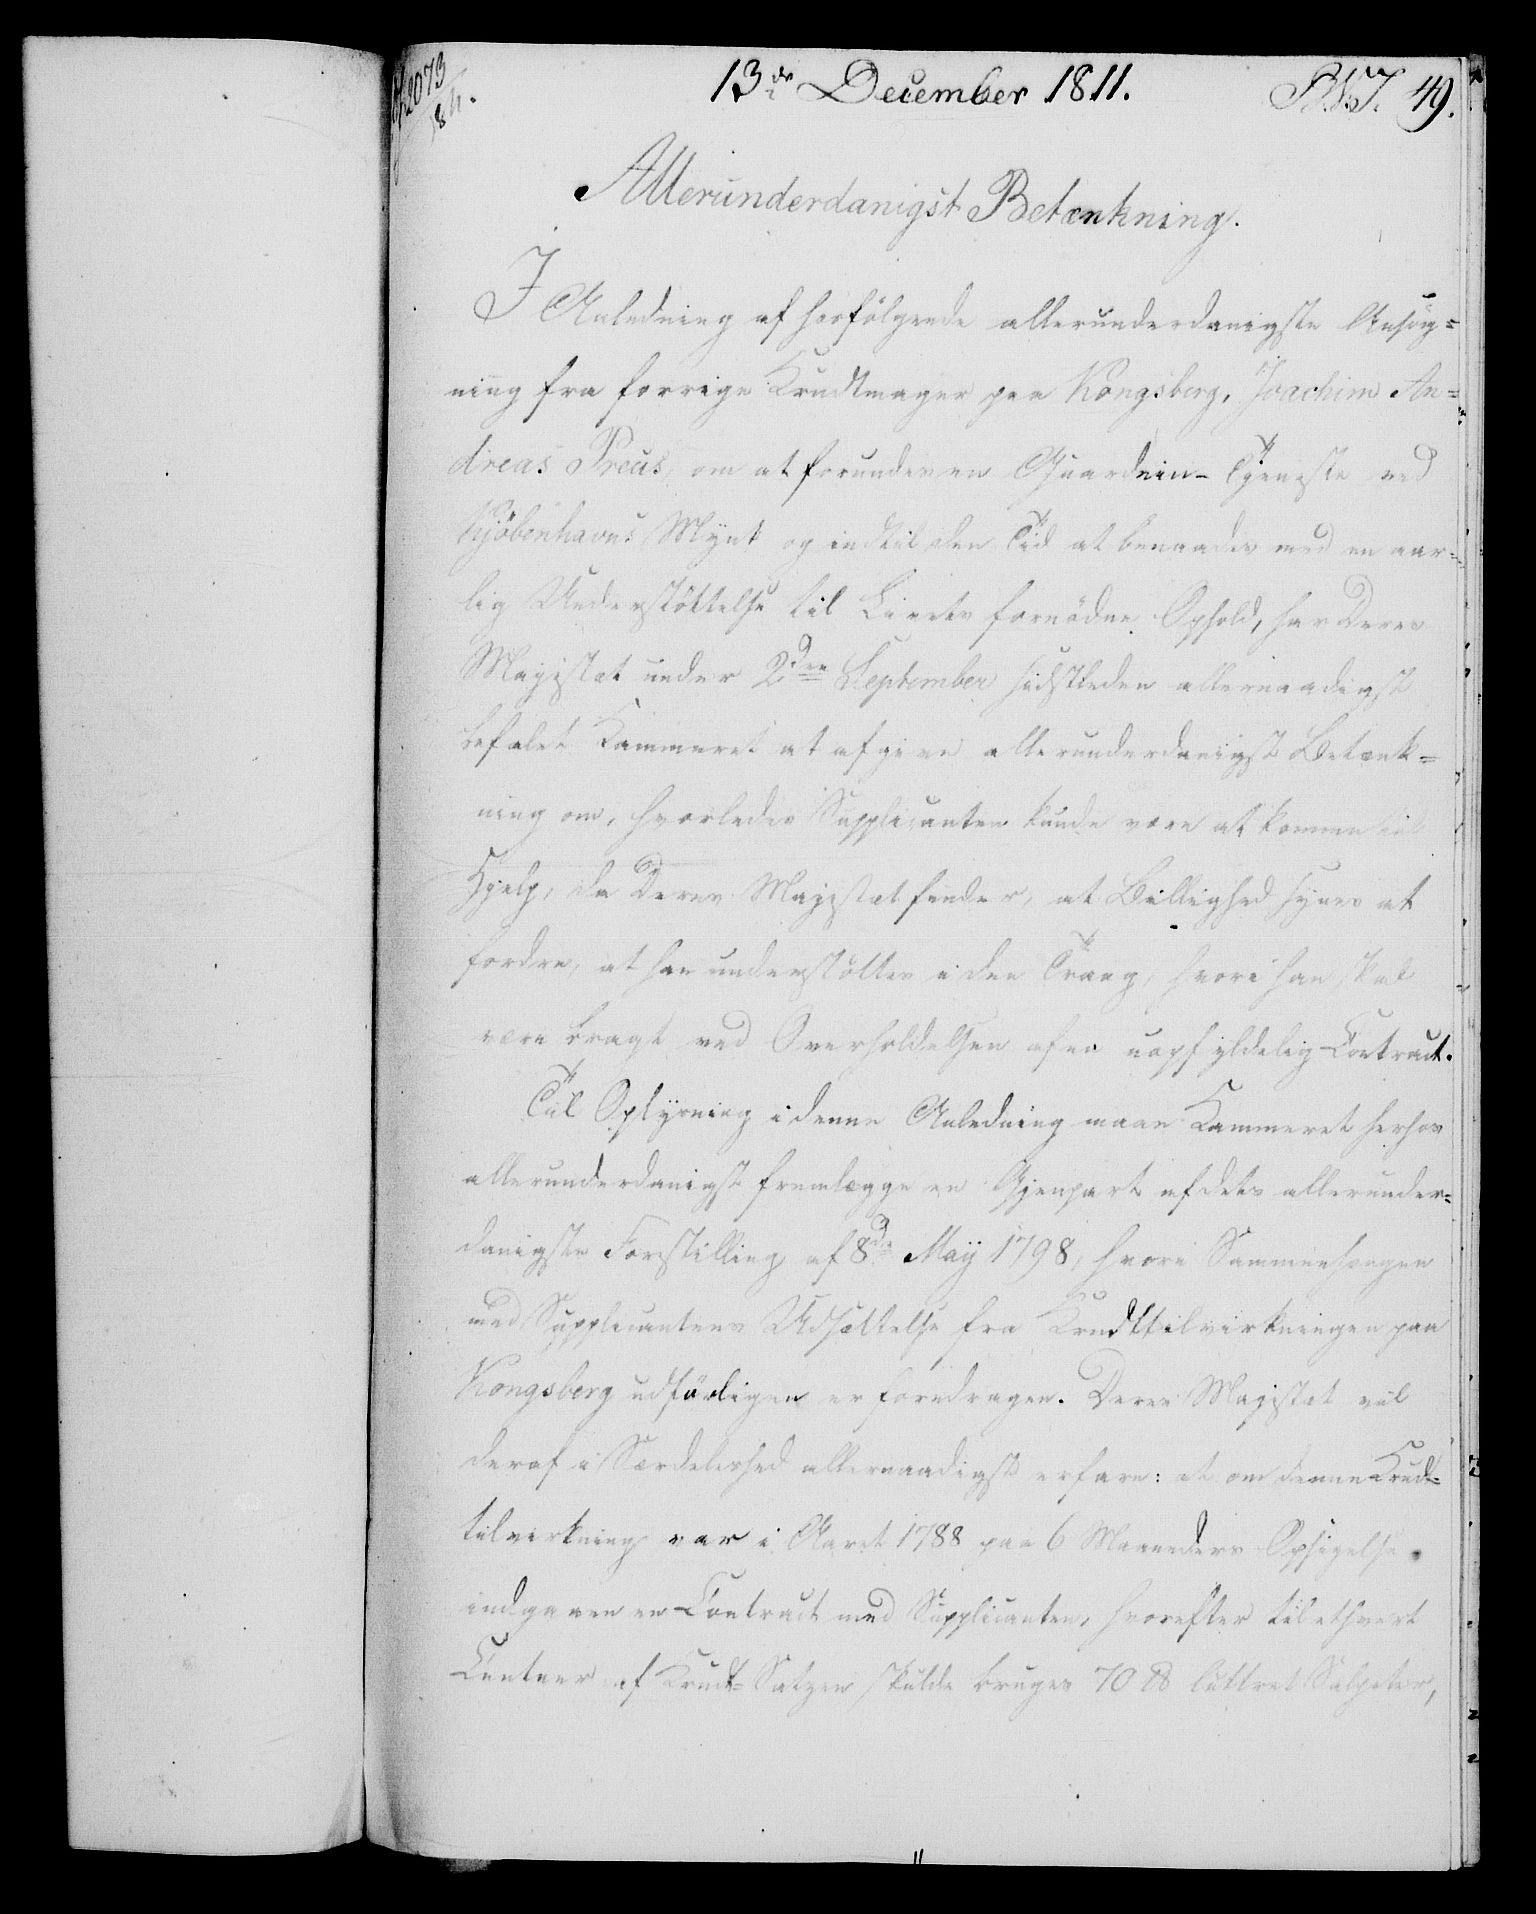 2073
1811.
13de December 1811.
49.
Allerunderdanigst Betænkning.
I Anledning af hosfölgende allerunderdanigste Ansög=
ning fra forrige Krudtmager paa Kongsberg, Joachim An=
dreas Preus, om at forundes en Guardein-Tjeneste ved
Kjöbenhavns Mynt og indtil den Tid at benaades med en aar=
lig Understöttelse til Livets fornödne Ophold, har Deres
Majestæt under 2den September sidstleden allernaadigst
befalet Kammeret at afgive allerunderdanigst Betænk=
ning om, hvorledes Supplicanten kunde være at komme til
Hjelp, da Deres Majestæt finder, at Billighed synes at
fordre, at han understöttes i den Trang, hvori han skal
være bragt ved Overholdelsen af en uopfyldelig Contract.
Til Oplysning i denne Anledning maae Kammeret herhos
allerunderdanigst fremlægge en Gjenpart af dets allerunder=
danigste Forstilling af 8de May 1798, hvori Sammenhængen
med Supplicantens Udsættelse fra Krudttilvirkningen paa
Kongsberg udförligen er foredragen. Deres Majestæt vil
deraf i Særdeleshed allernaadigst erfare: at om denne Krudt=
tilvirkning var i Aaret 1788 paa 6 Maaneders Opsigelse
indgaaen en Contract med Supplicanten, hvorefter til ethvert
Centner af Krudt-Satzen skulde bruges 70 ℔ luttret Salpeter,